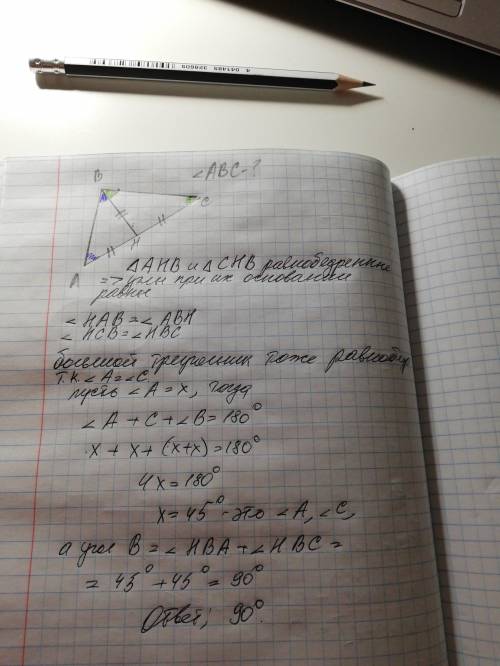 4 041485 328605
∠ABC-?
B
C
H
A
△AHB и △CHB равнобедренные
=> углы при их основании
равны
∠HAB=∠ABH
∠HCB=∠HBC
большой треугольник тоже равнобедр
т.к. ∠A=∠C.
пусть ∠A=x, тогда
∠A+C+∠B=180°
x+x+(x+x)=180°
4x=180°
x=45°-это ∠A,∠C,
а угол B=∠HBA+∠HBC=
=45°+45°=90°
Ответ; 90°.